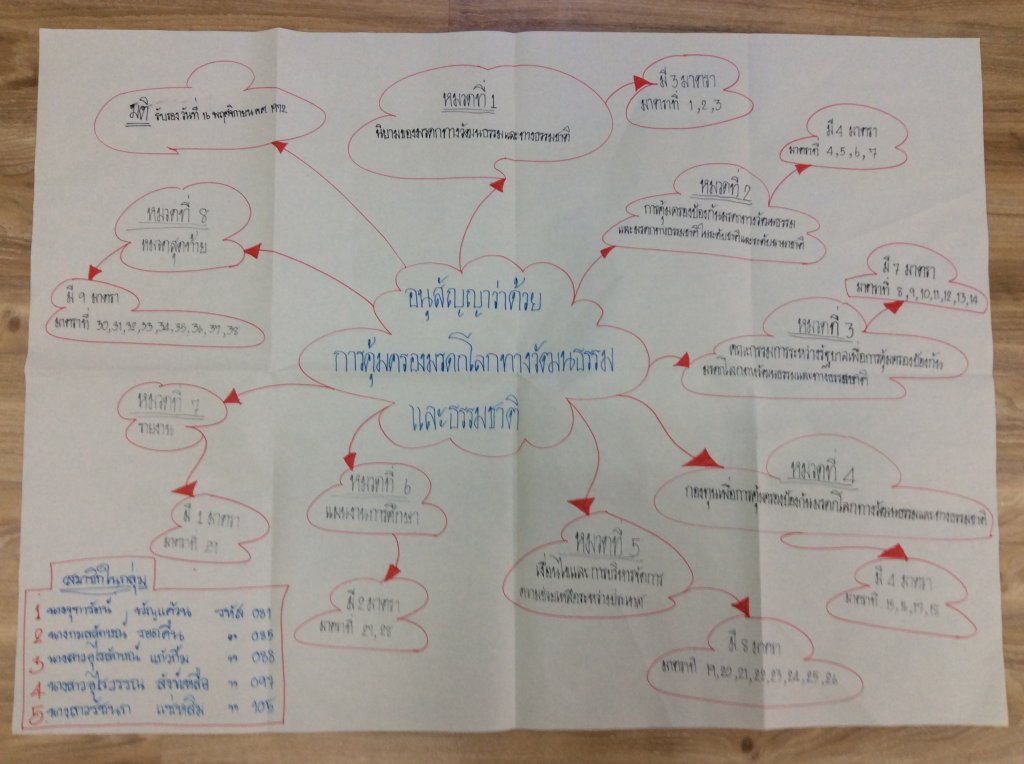 อนุสัญญาว่าด้วย
การคุ้มครองมรดกโลกทางวัฒนธรรม
และธรรมชาติ
มติ รับรอง วันที่ 16 พฤศจิกายน ค.ศ. 1972
หมวดที่ 1
นิยามของมรดกทางวัฒนธรรมและทางธรรมชาติ
มี 3 มาตรา
มาตราที่ 1,2,3
หมวดที่ 2
การคุ้มครองป้องกันมรดกทางวัฒนธรรม
และมรดกทางธรรมชาติ ในระดับชาติและระดับนานาชาติ
มี 4 มาตรา
มาตราที่ 4,5,6,7
หมวดที่ 3
คณะกรรมการระหว่างรัฐบาลเพื่อการคุ้มครองป้องกัน
มรดกโลกทางวัฒนธรรมและทางธรรมชาติ
มี 7 มาตรา
มาตราที่ 8,9,10,11,12,13,14
หมวดที่ 4
กองทุนเพื่อการคุ้มครองป้องกันมรดกโลกทางวัฒนธรรมและทางธรรมชาติ
มี 4 มาตรา
มาตราที่ 15,16,17,18
หมวดที่ 5
เงื่อนไขและการบริหารจัดการ
ความช่วยเหลือระหว่างประเทศ
มี 8 มาตรา
มาตราที่ 19,20,21,22,23,24,25,26
หมวดที่ 6
แผนงานการศึกษา
มี 2 มาตรา
มาตราที่ 27,28
หมวดที่ 7
รายงาน
มี 1 มาตรา
มาตราที่ 29
หมวดที่ 8
หมวดสุดท้าย
มี 9 มาตรา
มาตราที่ 30,31,32,33,34,35,36,37,38
สมาชิกในกลุ่ม
1 นางจุฑารัตน์ ขวัญแก้วน รหัส 081
2 " 085
3 นางสาวอุไรลักษณ์ แก้วกิ้ม " 088
4 นางสาวอุไรวรรณ " 097
5 นางสาวรัชนก แซ่หลิม " 105